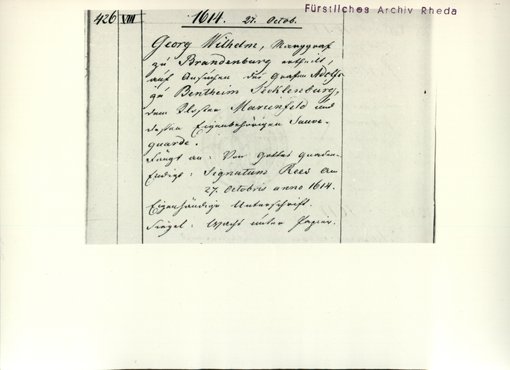 Fürstliches Archiv Rheda
426 VIII 1614. 27. Octob.
Georg Wilhelm, Marggraf
zu Brandenburg ertheilt,
auf Ansuchen des Grafen Adolfs
zu Bentheim Tecklenburg,
dem Kloster Marienfeld und
dessen Eigenbehörigen Sauve-
guarde.
Fängt an: Von Gottes gnaden.
Endigt: Signatum Rees am
27. Octobris anno 1614.
Eigenhändige Unterschrift.
Siegel: Wachs unter Papier.